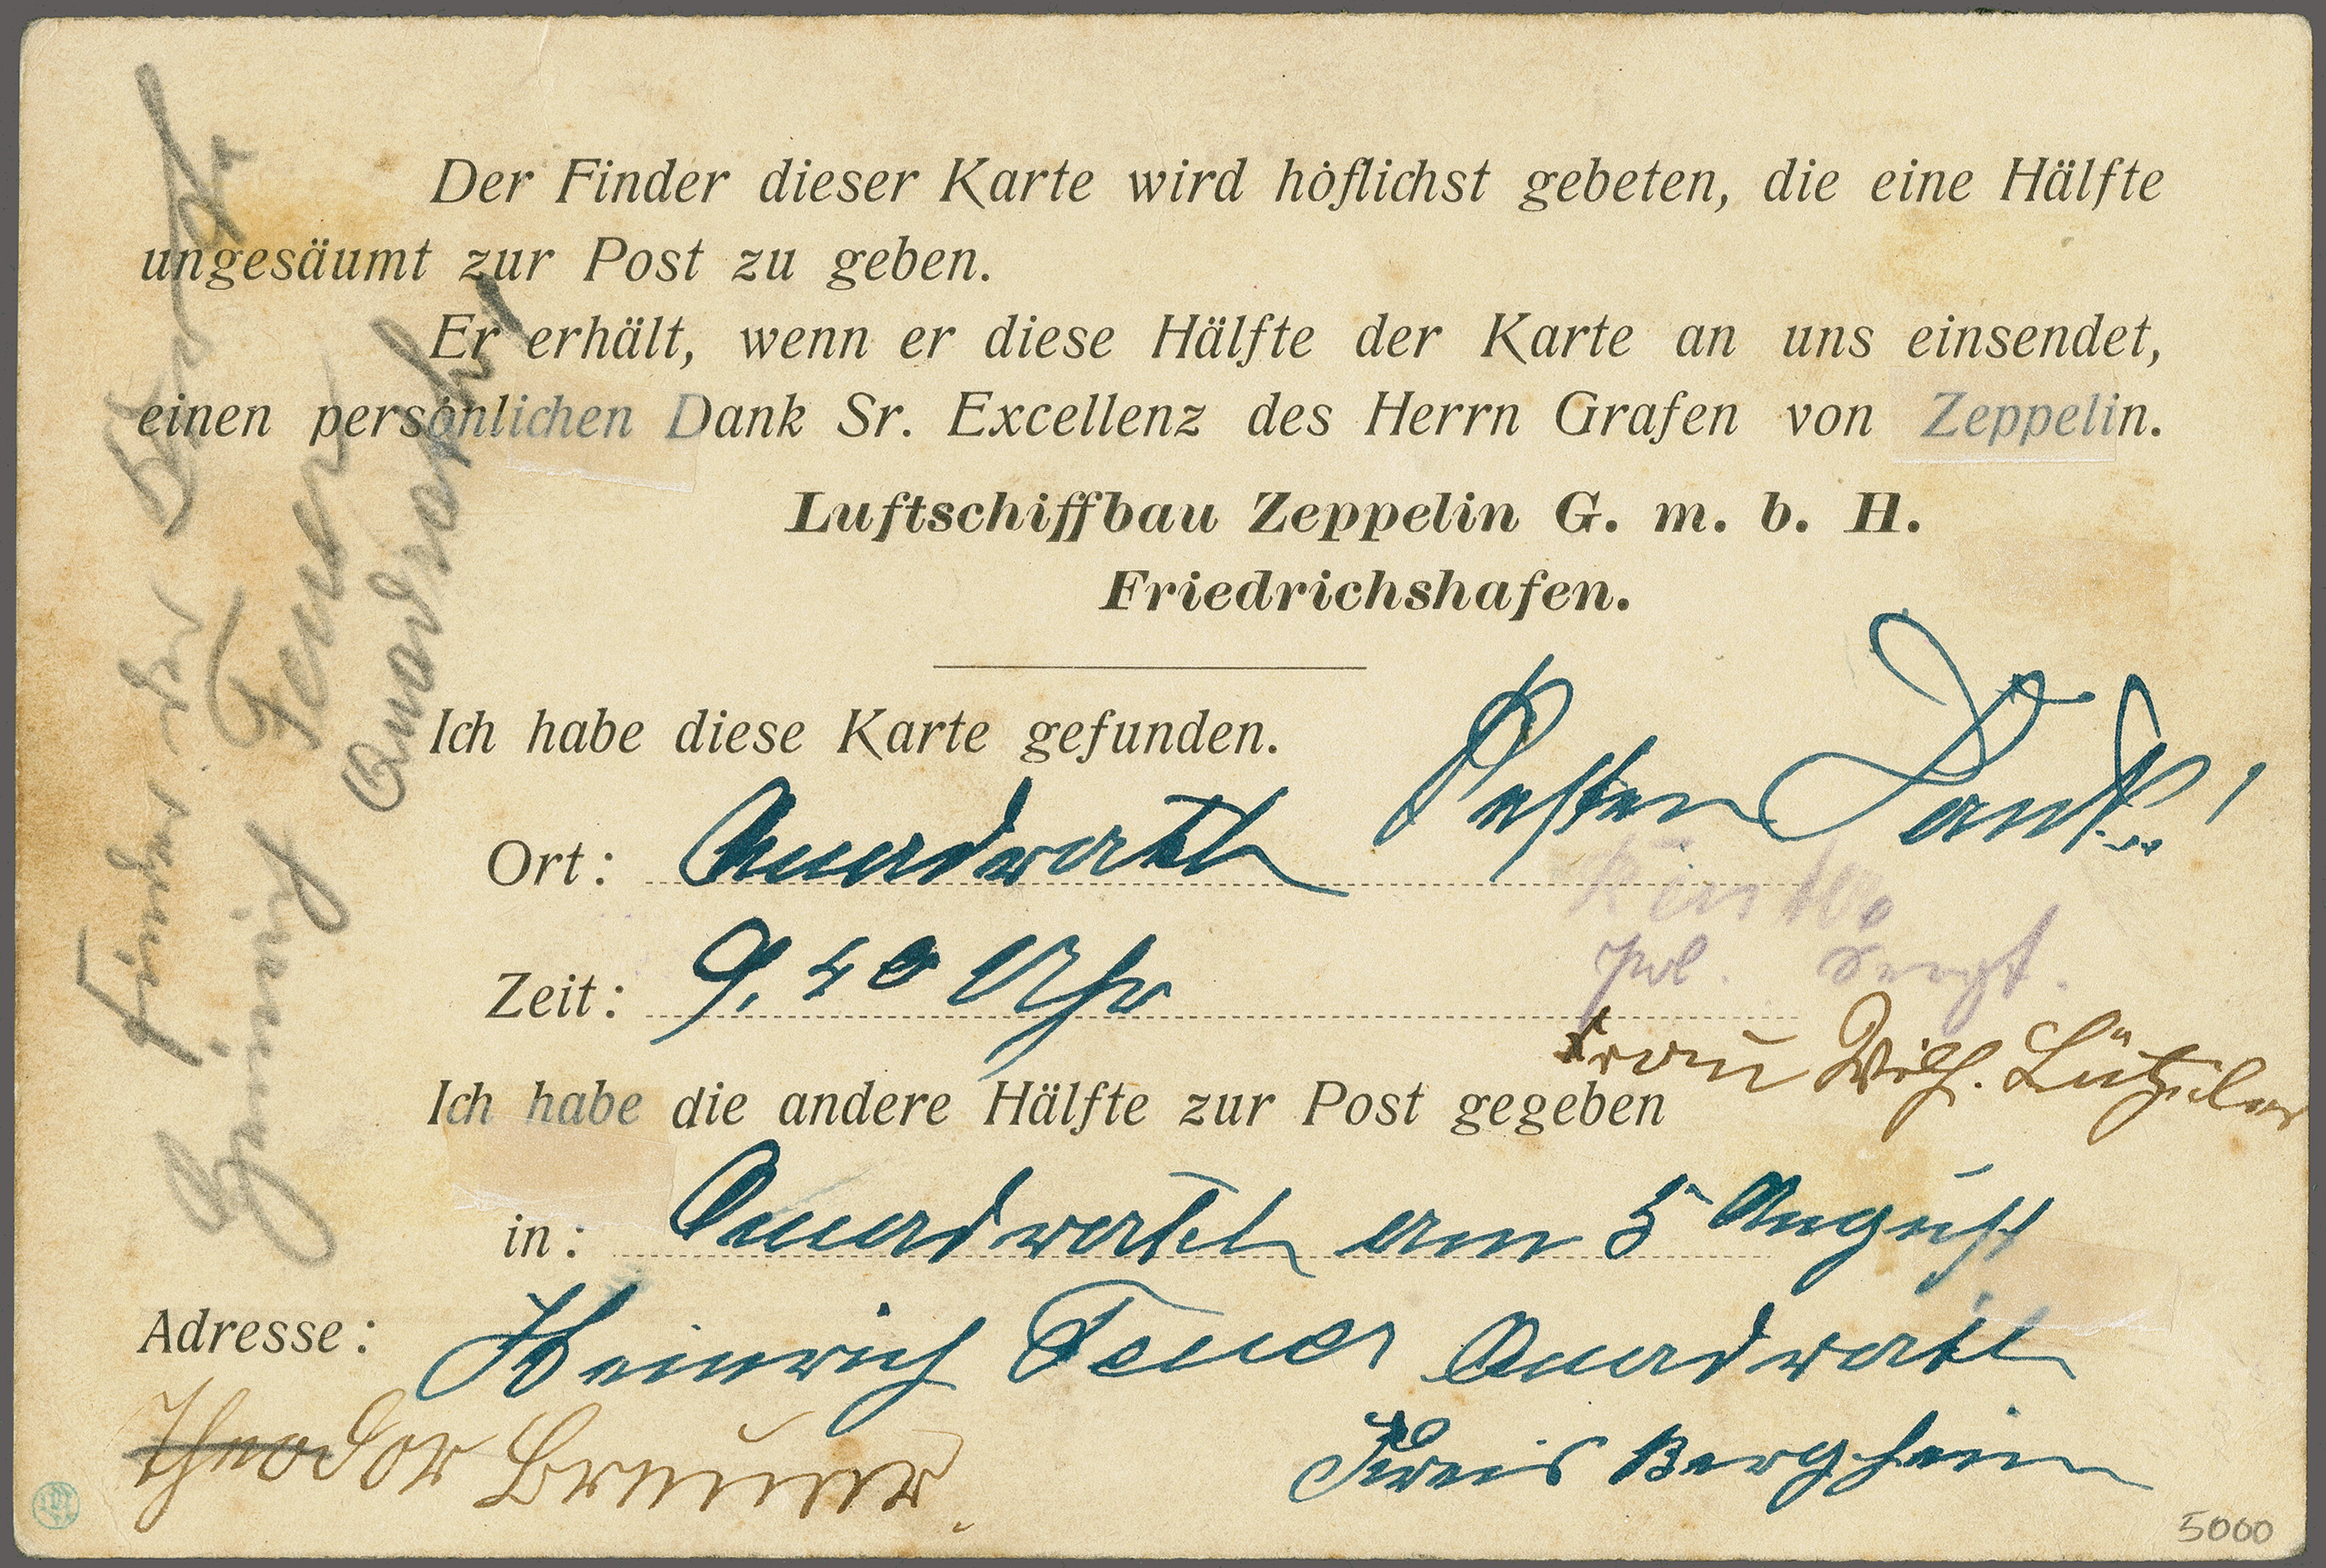 Der Finder dieser Karte wird höflichst gebeten, die eine Hälfte
ungesäumt zur Post zu geben.
Er erhält, wenn er diese Hälfte der Karte an uns einsendet,
einen persönlichen Dank Sr. Excellenz des Herrn Grafen von Zeppelin.
Luftschiffbau Zeppelin G. m. b. H.
Friedrichshafen.
Ich habe diese Karte gefunden.
Besten Dank!
Ort: Quadrath
Zeit: 9,40 Uhr
pol. Sergt.
Frau Wilh. Lützeler
Ich habe die andere Hälfte zur Post gegeben
in: Quadrath am 5 August
Adresse: Heinrich Feuer Quadrath
Kreis Bergheim
Theodor Brauner
Finder der Karte
Heinrich Feuer
Quadrath
5000